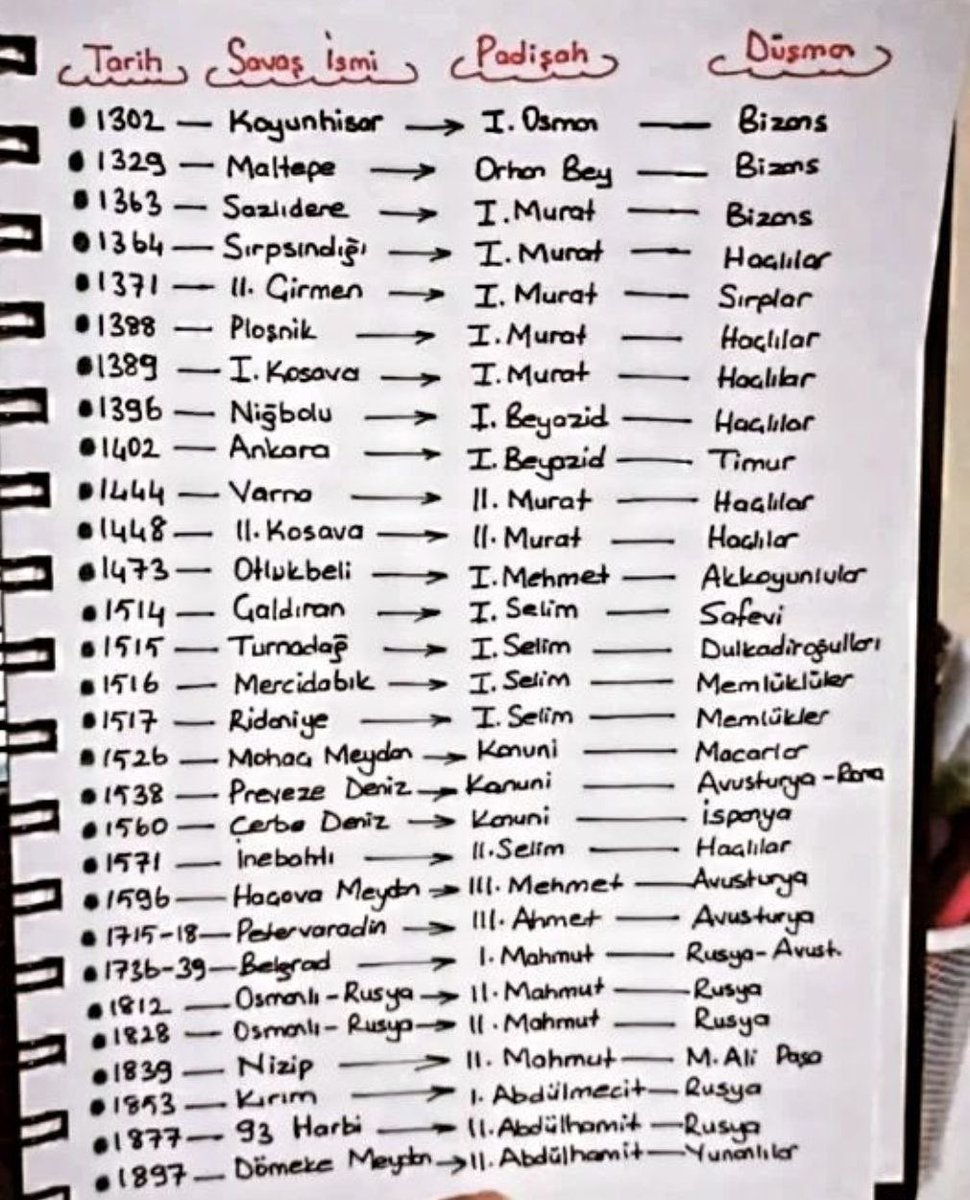 Tarih Savaş İsmi Padişah Düşman
• 1302 — Koyunhisar → I. Osman — Bizans
• 1329 — Maltepe → Orhan Bey — Bizans
• 1363 — Sazlıdere → I. Murat — Bizans
• 1364 — Sırpsındığı → I. Murat — Haçlılar
• 1371 — II. Çirmen → I. Murat — Sırplar
• 1388 — Ploşnik → I. Murat — Haçlılar
• 1389 — I. Kosava → I. Murat — Haçlılar
• 1396 — Niğbolu → I. Beyazid — Haçlılar
• 1402 — Ankara → I. Beyazid — Timur
• 1444 — Varna → II. Murat — Haçlılar
• 1448 — II. Kosava → II. Murat — Haçlılar
• 1473 — Otlukbeli → I. Mehmet — Akkoyunlular
• 1514 — Çaldıran → I. Selim — Safevi
• 1515 — Turnadağ → I. Selim — Dulkadiroğulları
• 1516 — Mercidabık → I. Selim — Memlüklüler
• 1517 — Ridaniye → I. Selim — Memlükler
• 1526 — Mohaç Meydan → Kanuni — Macarlar
• 1538 — Preveze Deniz → Kanuni — Avusturya - Roma
• 1560 — Cerbe Deniz → Kanuni — İspanya
• 1571 — İnebahtı → II. Selim — Haçlılar
• 1596 — Haçova Meydan → III. Mehmet — Avusturya
• 1715-18 — Petervaradin → III. Ahmet — Avusturya
• 1736-39 — Belgrad → I. Mahmut — Rusya - Avust.
• 1812 — Osmanlı - Rusya → II. Mahmut — Rusya
• 1828 — Osmanlı - Rusya → II. Mahmut — Rusya
• 1839 — Nizip → II. Mahmut — M. Ali Paşa
• 1853 — Kırım → I. Abdülmecit — Rusya
• 1877 — 93 Harbi → II. Abdülhamit — Rusya
• 1897 — Dömeke Meydan → II. Abdülhamit — Yunanlılar